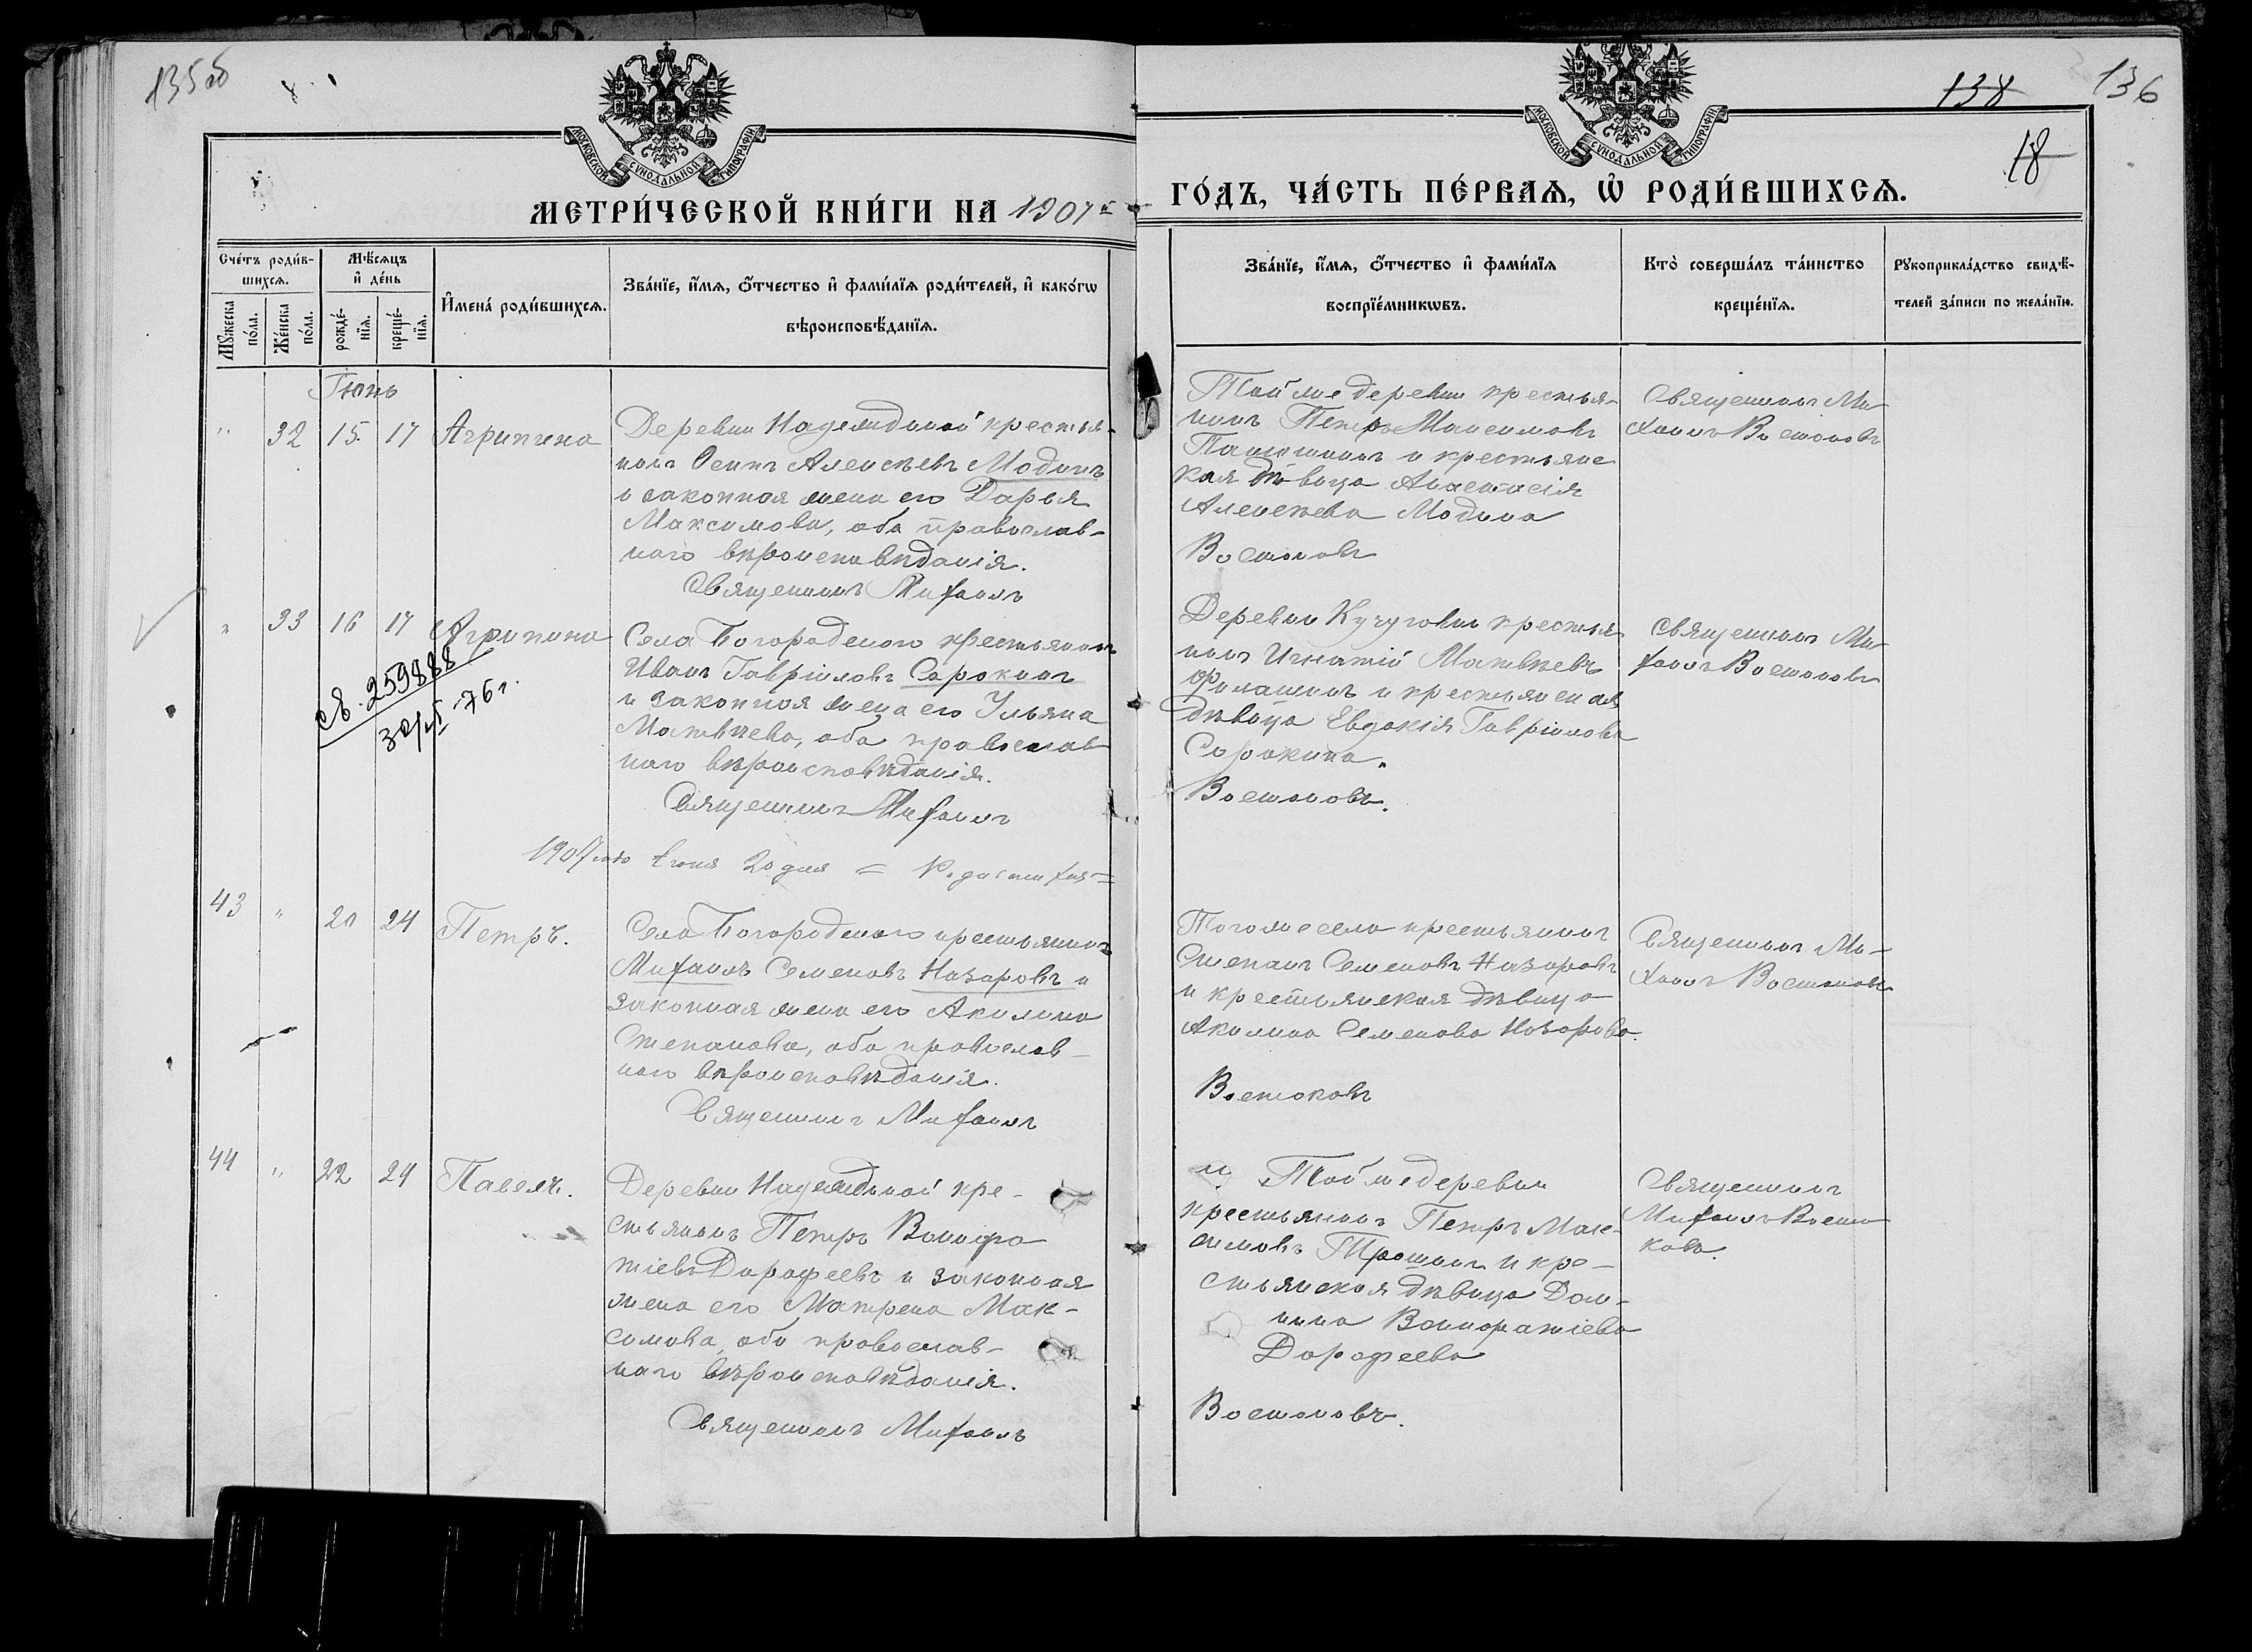 135об
138
136
18
МОСКОВСКОЙ СѴНОДАЛЬНОЙ ТИПОГРАФІИ
МОСКОВСКОЙ СѴНОДАЛЬНОЙ ТИПОГРАФІИ
МЕТРИ́ЧЕСКОЙ КНИ́ГИ НА 1907й
ГО́ДЪ, ЧА́СТЬ ПЕ́РВАѦ, Ѡ҆ РОДИ́ВШИХСѦ.
Сче́тъ роди́в-
шихсѧ.
Мꙋ́жеска по́ла.
Же́нска по́ла.
Мѣ́сѧцъ
и҆ де́нь
рожде́-
нїѧ.
креще́-
нїѧ.
И҆мена́ роди́вшихсѧ.
Зва́нїе, и҆́мѧ, ѻ҆́тчество и҆ фами́лїѧ роди́телей, и҆ како́гѡ
вѣроисповѣ́данїѧ.
Зва́нїе, и҆́мѧ, ѻ҆́тчество и҆ фами́лїѧ
воспрїе́мникѡвъ.
Кто̀ соверша́лъ та́инство
креще́нїѧ.
Рꙋкоприкла́дство свидѣ́-
телей за́писи по жела́нїю.
Іюнь
" 32 15. 17 Агрипина
Деревни Надеждиной крестья-
нинъ Осипъ Алексѣевъ Модинъ
и законная жена его Дарья
Максимова, оба православ-
наго вѣроисповѣданія.
Священникъ Михаилъ
Той же деревни крестья-
нинъ Петръ Максимовъ
и крестьянс
кая дѣвица Анастасія
Алексѣева Модина
Востоковъ
Священникъ Ми-
хаилъ Востоковъ
" 33 16 17 Агрипина
св. 259888
76 г.
Села Богородскаго крестьянинъ
Иванъ Гавріиловъ Сорокинъ
и законная жена его Ульяна
Матвѣева, оба православ
наго вѣроисповѣданія.
Священникъ Михаилъ
Деревни Кучуговки крестья
нинъ Игнатій Матвѣевъ
Филашинъ и крестьянская
дѣвица Евдокія Гавріилова
Сорокина.
Востоковъ.
Священникъ Ми-
хаилъ Востоковъ
1907 года Іюня 20 дня =
43 " 20 24 Петръ.
Села Богородскаго крестьянинъ
Михаилъ Семеновъ Назаровъ и
законная жена его Акилина
Степанова, оба православ-
наго вѣроисповѣданія.
Священникъ Михаилъ
Того же села крестьянинъ
Степанъ Семеновъ Назаровъ
и крестьянская дѣвица
Акилина Семенова Назарова.
Востоковъ
Священникъ Ми-
хаилъ Востоковъ
44 " 22 24 Павелъ.
Деревни Надеждиной кре-
стьянинъ Петръ Вонифа
тіевъ Дорофеевъ и законная
жена его Матрена Мак-
симова, оба православ-
наго вѣроисповѣданія.
Священникъ Михаилъ
Той же деревни
крестьянинъ Петръ Мак-
симовъ Трошинъ и кре-
стьянская дѣвица Дом-
нина Вонифатіева
Дорофеева
Востоковъ.
Священникъ
Михаилъ Восто
ковъ.